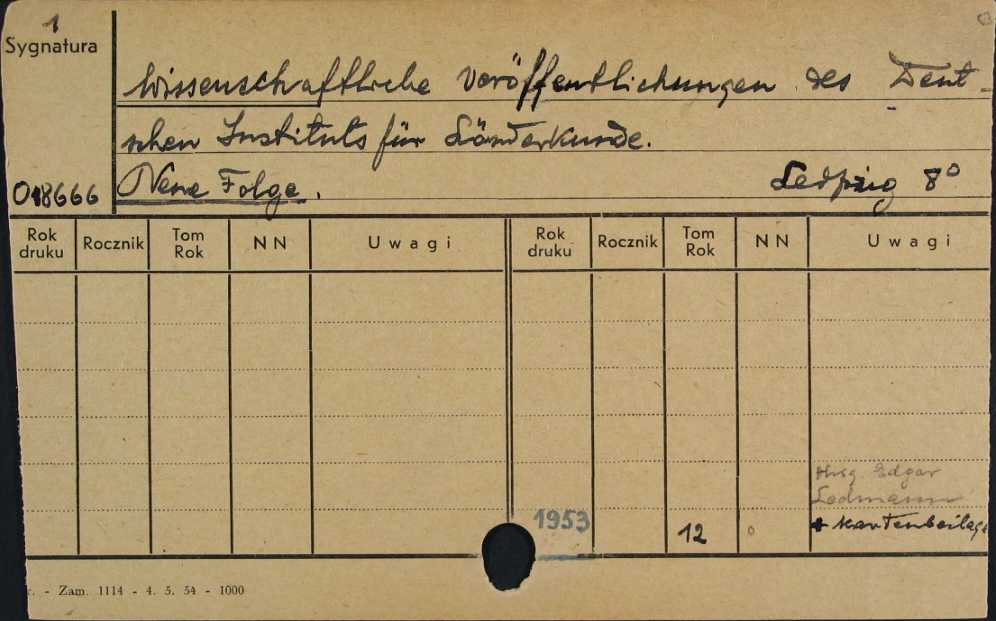 1
Sygnatura
Wissenschaftliche Veröffentlichungen des Deut-
schen Instituts für Länderkunde.
018666 Neue Folge. Leipzig 8°
Rok druku Rocznik Tom Rok NN Uwagi Rok druku Rocznik Tom Rok NN Uwagi
Hrsg. Edgar
Lehmann
1953 12 + Kartenbeilage
r. - Zam. 1114 - 4. 5. 54 - 1000